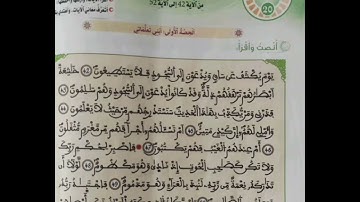 من الآية 42 إلى الآية 52
20
الحصة الأولى: أبني تعلماتي
أنصت وأقرأ:
يَوْمَ يُكْشَفُ عَن سَاقٍ وَيُدْعَوْنَ إِلَى السُّجُودِ فَلَا يَسْتَطِيعُونَ (42) خَاشِعَةً
أَبْصَارُهُمْ تَرْهَقُهُمْ ذِلَّةٌ وَقَدْ كَانُوا يُدْعَوْنَ إِلَى السُّجُودِ وَهُمْ سَالِمُونَ (43)
فَذَرْنِي وَمَن يُكَذِّبُ بِهَذَا الْحَدِيثِ سَنَسْتَدْرِجُهُم مِّنْ حَيْثُ لَا يَعْلَمُونَ (44)
وَأُمْلِي لَهُمْ إِنَّ كَيْدِي مَتِينٌ (45) أَمْ تَسْأَلُهُمْ أَجْرًا فَهُم مِّن مَّغْرَمٍ مُّثْقَلُونَ
(46) أَمْ عِندَهُمُ الْغَيْبُ فَهُمْ يَكْتُبُونَ (47) فَاصْبِرْ لِحُكْمِ رَبِّكَ
وَلَا تَكُن كَصَاحِبِ الْحُوتِ إِذْ نَادَى وَهُوَ مَكْظُومٌ (48) لَّوْلَا أَن
تَدَارَكَهُ نِعْمَةٌ مِّن رَّبِّهِ لَنُبِذَ بِالْعَرَاءِ وَهُوَ مَذْمُومٌ (49) فَاجْتَبَاهُ رَبُّهُ